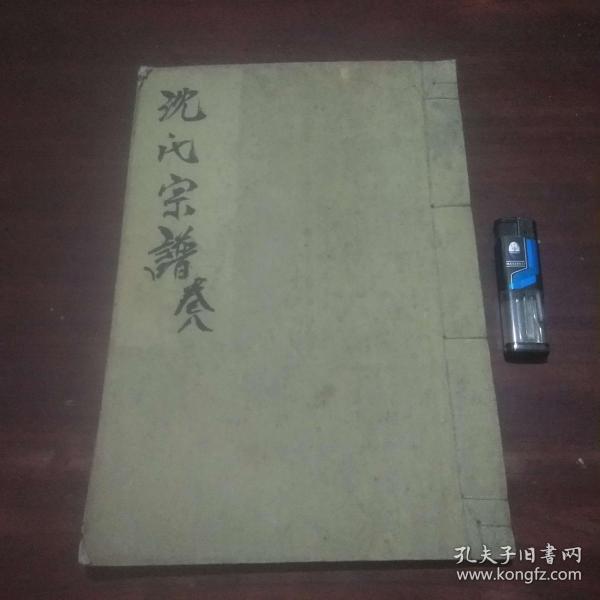 沈氏宗譜
卷八
孔夫子旧書网
www.kongfz.com